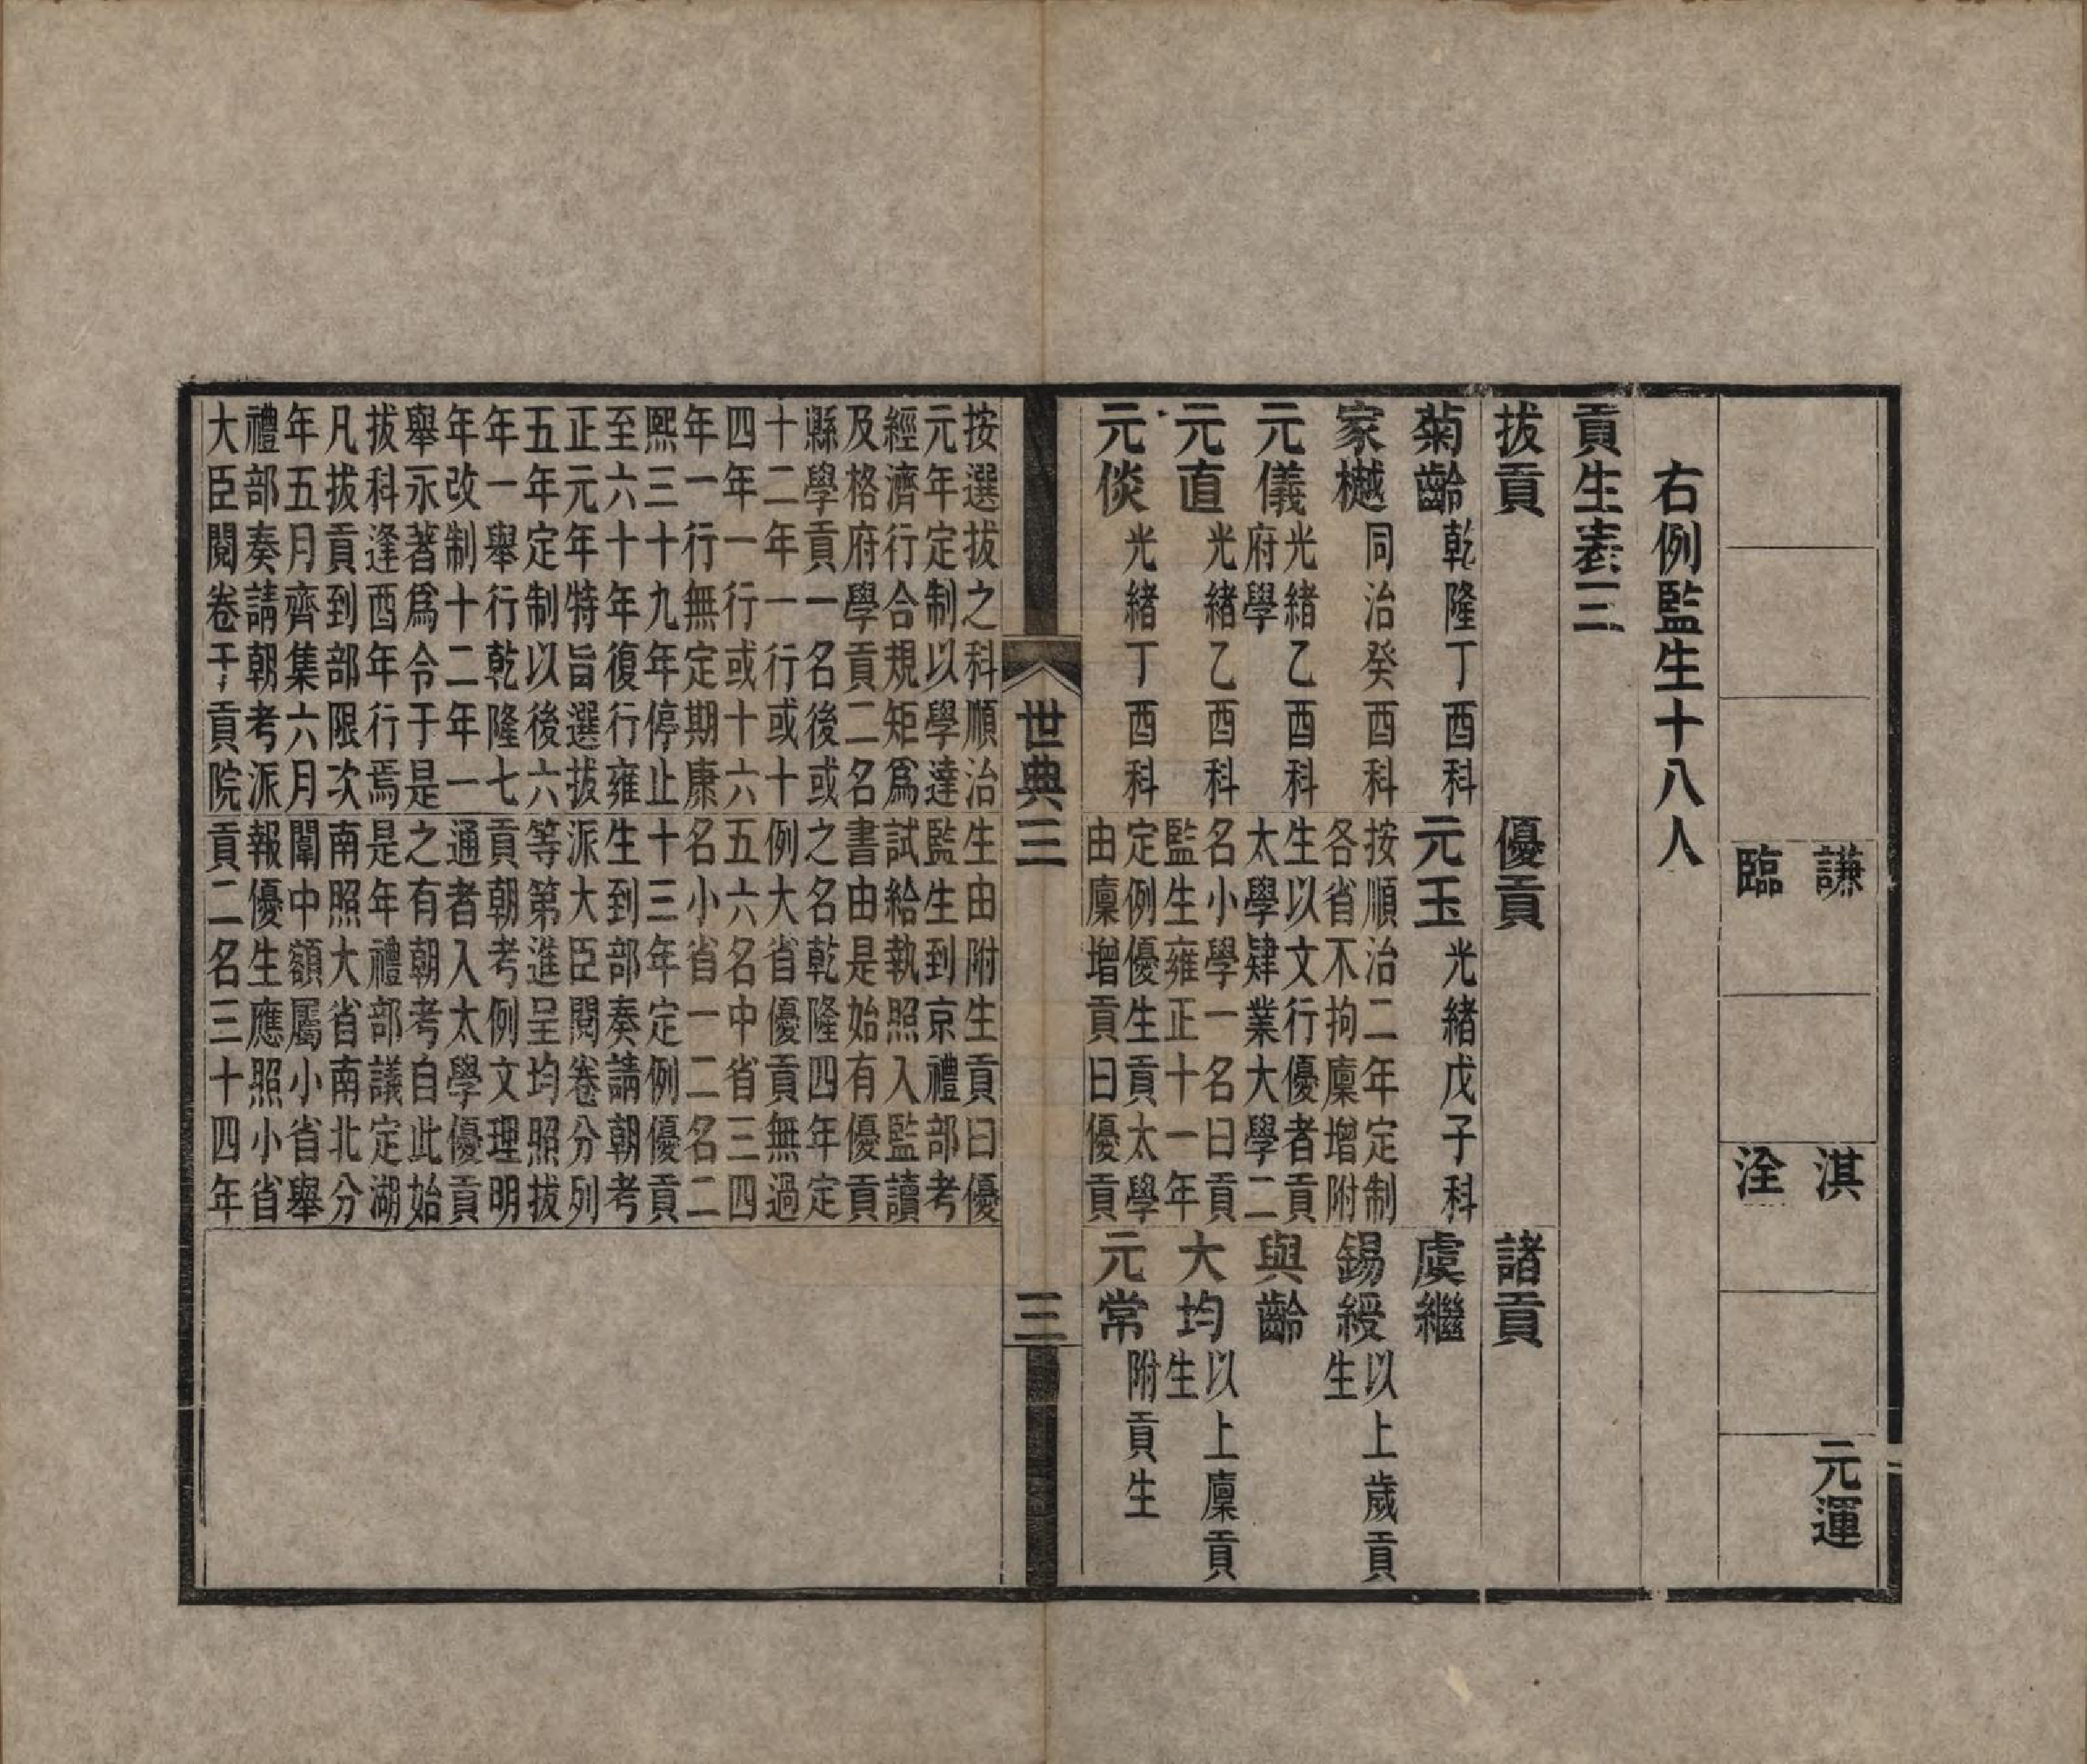 謙
淇
元運
臨
洤
右例監生十八人
貢生表三
拔貢
菊齡 乾隆丁酉科
家樾 同治癸酉科
元儀 光緒乙酉科
府學
元直 光緒乙酉科
元倓 光緒丁酉科
按選拔之科順治
元年定制以學達
經濟行合規矩爲
及格府學貢二名
縣學貢一名後或
十二年一行或十
四年一行或十六
年一行無定期康
熙三十九年停止
至六十年復行雍
正元年特旨選拔
五年定制以後六
年一舉行乾隆七
年改制十二年一
舉永著爲令于是
拔科逢酉年行焉
凡拔貢到部限次
年五月齊集六月
禮部奏請朝考派
大臣閱卷于貢院
優貢
元玉 光緒戊子科
按順治二年定制
各省不拘廩增附
生以文行優者貢
太學肄業大學二
名小學一名曰貢
監生雍正十一年
定例優生貢太學
由廩增貢曰優貢
生由附生貢曰優
監生到京禮部考
試給執照入監讀
書由是始有優貢
之名乾隆四年定
例大省優貢無過
五六名中省三四
名小省一二名二
十三年定例優貢
生到部奏請朝考
派大臣閱卷分列
等第進呈均照拔
貢朝考例文理明
通者入太學優貢
之有朝考自此始
是年禮部議定湖
南照大省南北分
闈中額屬小省舉
報優生應照小省
貢二名三十四年
諸貢
虞繼
錫綬 以上歲貢
生
與齡
大均 以上廩貢
生
元常 附貢生
世典三
三